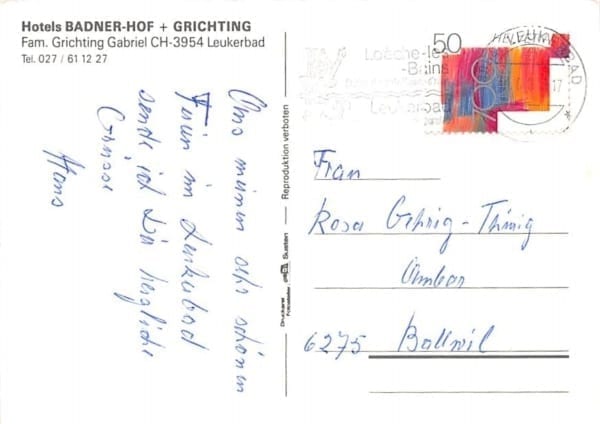 Hotels BADNER-HOF + GRICHTING
Fam. Grichting Gabriel CH-3954 Leukerbad
Tel. 027 / 61 12 27
Aus meinen sehr schönen
Ferien in Leukerbad
sende ich Dir herzliche
Grüsse
Hans
Reproduktion verboten
Susten
50
700
Loèche-les
-Bains
Leukerbad
17
Frau
Rosa Gehrig-
Ambar
6275 Ballwil